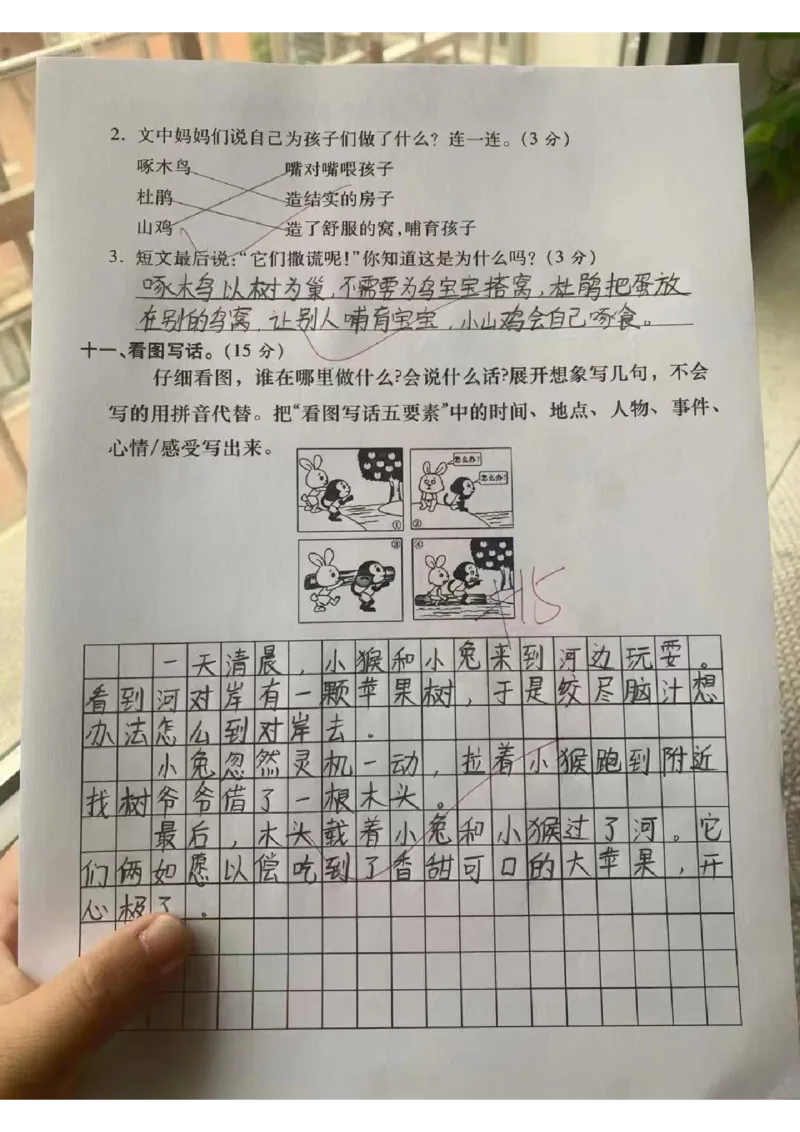 2. 文中妈妈们说自己为孩子们做了什么？连一连。(3 分)
啄木鸟 嘴对嘴喂孩子
杜鹃 造结实的房子
山鸡 造了舒服的窝,哺育孩子
3. 短文最后说:“它们撒谎呢!”你知道这是为什么吗? (3 分)
啄木鸟以树为巢,不需要为鸟宝宝搭窝,杜鹃把蛋放
在别的鸟窝,让别人哺育宝宝,小山鸡会自己啄食。
十一、看图写话。(15 分)
仔细看图，谁在哪里做什么?会说什么话?展开想象写几句，不会
写的用拼音代替。把“看图写话五要素”中的时间、地点、人物、事件、
心情/感受写出来。
①
②
怎么办?
怎么办?
③
④
15
一天清晨，小猴和小兔来到河边玩耍。
看到河对岸有一颗苹果树，于是绞尽脑汁想
办法怎么到对岸去。
小兔忽然灵机一动，拉着小猴跑到附近
找树爷爷借了一根木头。
最后，木头载着小兔和小猴过了河。它
们俩如愿以偿吃到了香甜可口的大苹果，开
心极了。